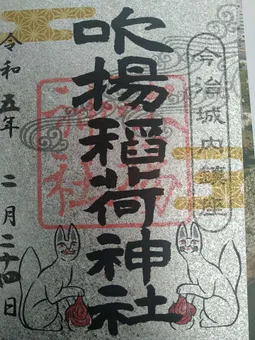 今治城内鎮座
吹揚稲荷神社
令和五年 二月二十四日